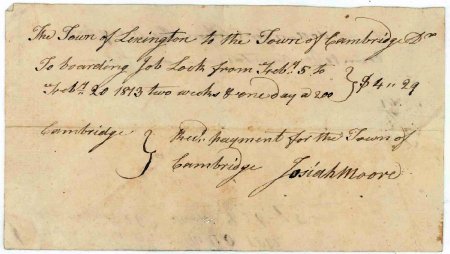 The Town of Lexington to the Town of Cambridge Dr
To boarding Job Lock from Feb.y 5 to
Feb.y 20 1813 two weeks & one day a 200 } $4 " 29
Cambridge } Rec.d payment for the Town of
Cambridge Josiah Moore